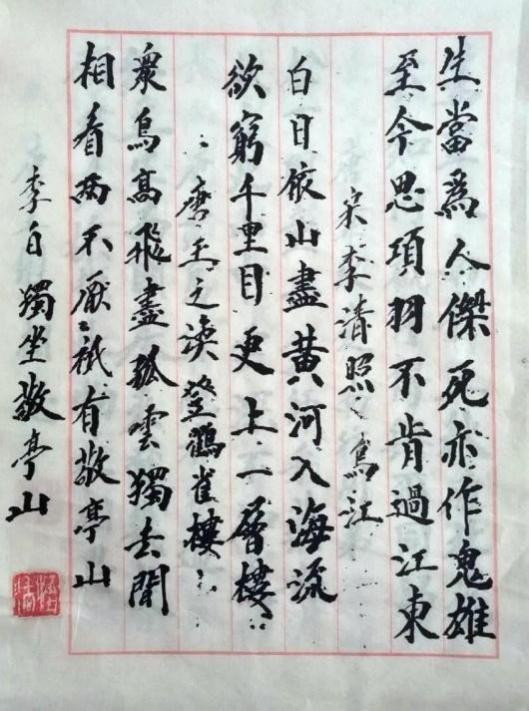 生當爲人傑死亦作鬼雄
至今思項羽不肯過江東
宋李清照 烏江
白日依山盡黄河入海流
欲窮千里目更上一層樓
唐王之渙登鸛雀樓
衆鳥高飛盡孤雲獨去閒
相看兩不厭祇有敬亭山
李白獨坐敬亭山